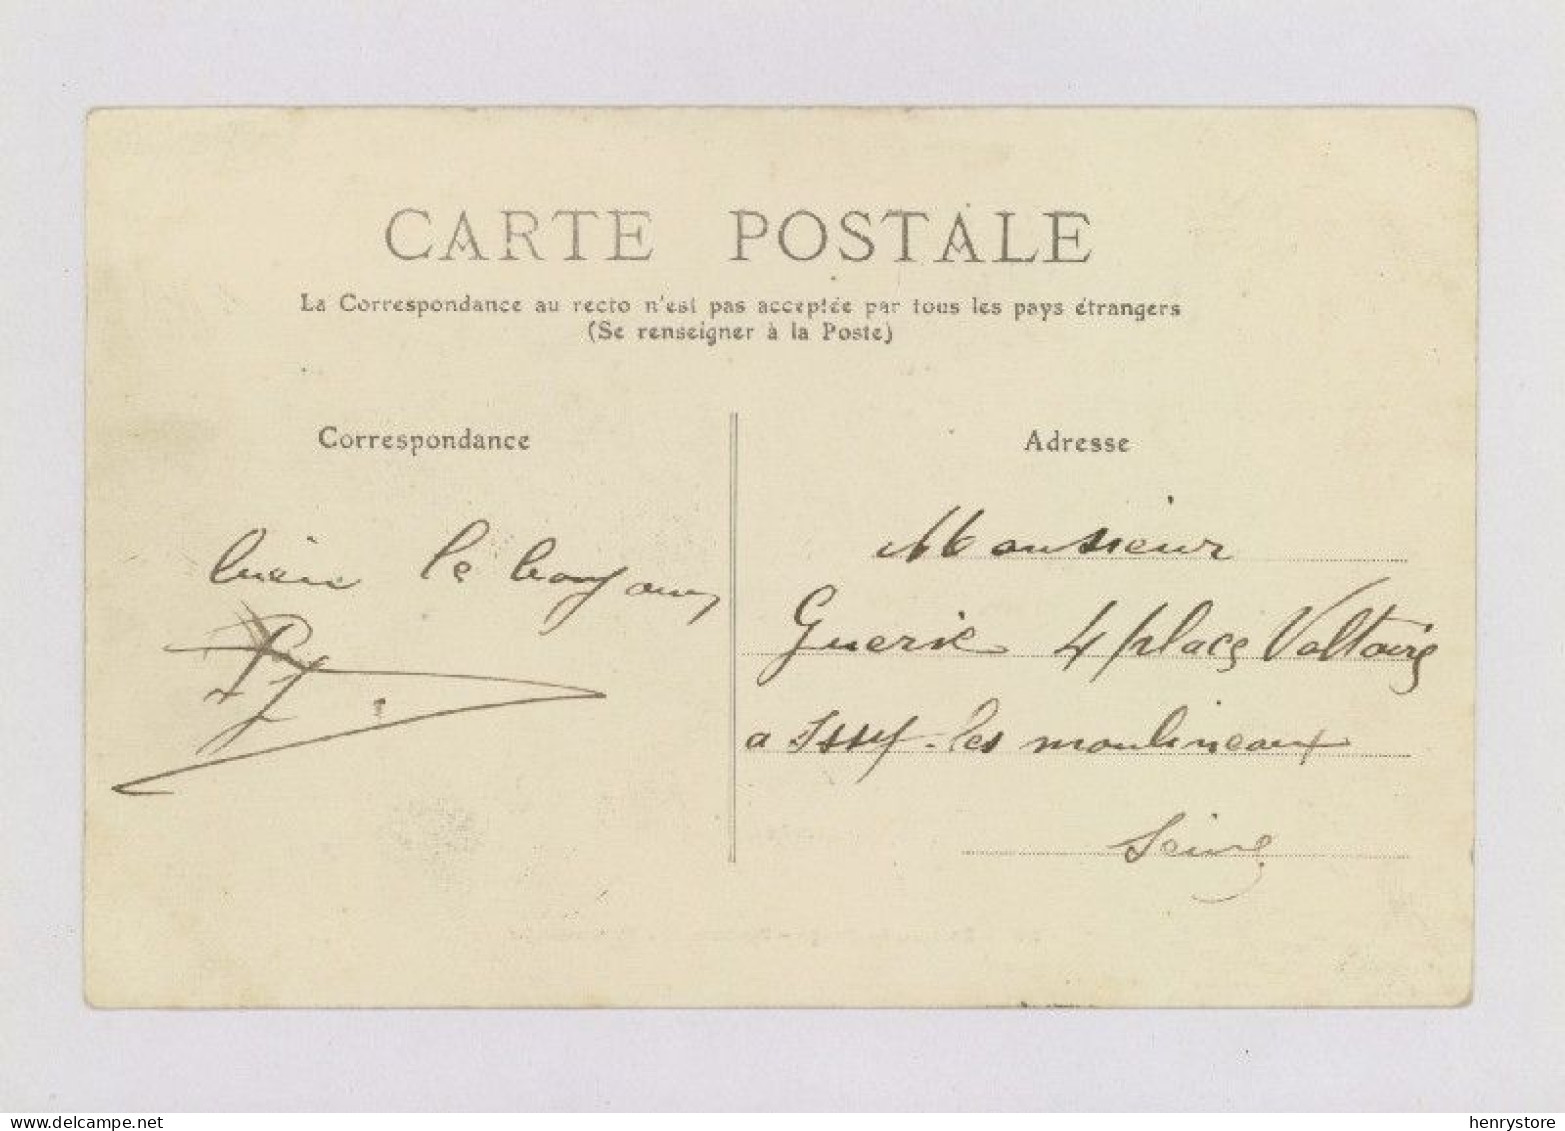 CARTE POSTALE
La Correspondance au recto n'est pas acceptée par tous les pays étrangers
(Se renseigner à la Poste)
Correspondance
Adresse
le
Monsieur
Guerie 4 place Voltaire
a Issy-les moulineaux
Seine
www.delcampe.net
henrystore